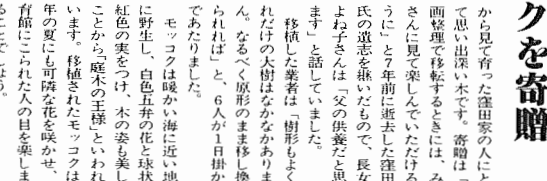 クを寄贈
から見て育った窪田家の人にと
て思い出深い木です。寄贈は「
画整理で移転するときには、み
さんに見て楽しんでいただける
うに」と７年前に逝去した窪田
氏の遺志を継いだもので、長女
よね子さんは「父の供養だと思
ます」と話していました。
移植した業者は「樹形もよく
れだけの大樹はなかなかありま
ん。なるべく原形のまま移し換
られれば」と、６人が１日掛か
であたりました。
モッコクは暖かい海に近い地
に野生し、白色五弁の花と球状
紅色の実をつけ、木の姿も美し
ことから「庭木の王様」といわれ
います。移植されたモッコクは
年の夏にも可隣な花を咲かせ、
育館にこられた人の目を楽しま
ることでしょう。